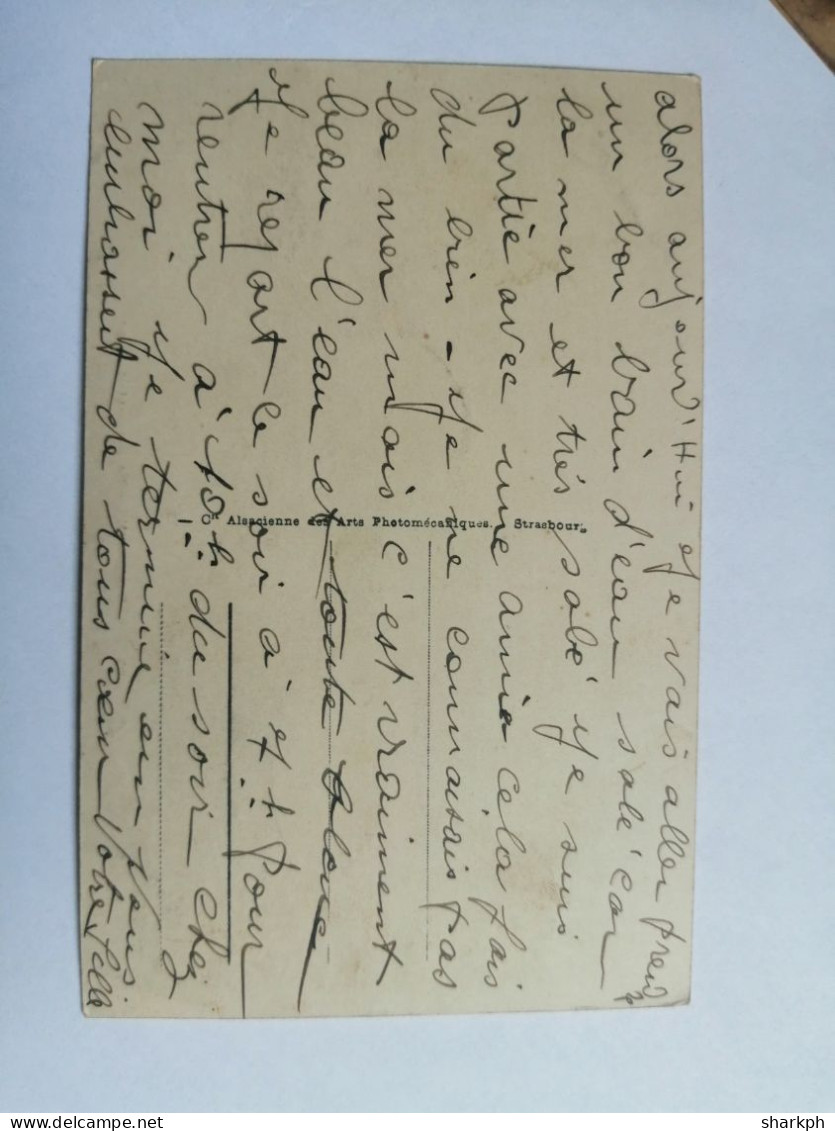 alors aujourd'Hui Je vais aller prend
un bon bain d'eau salé car
la mer et très salé Je suis
Partie avec une amie cela fais
du bien - Je ne connaisais Pas
la mer mais c'est vraiment
beau l'eau et toute blanc
Je repart le soir à 7h Pour
rentrer à 10h du soir chez
moi Je termine en Vous
embrassent de tous cœur Votre fille
Cie Alsacienne des Arts Photomécaniques. Strasbourg
delcampe.net
sharkph